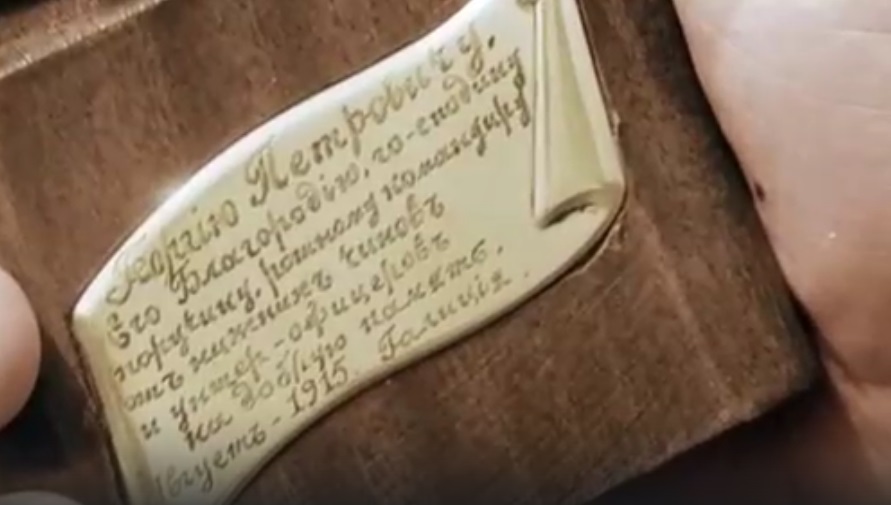 Георгію Петровичу,
Его Благородію, го-сподину
поручику, ротному командиру
отъ нижнихъ чиновъ
и унтер-офицеровъ
на добрую память.
Августъ - 1915. Галиція.